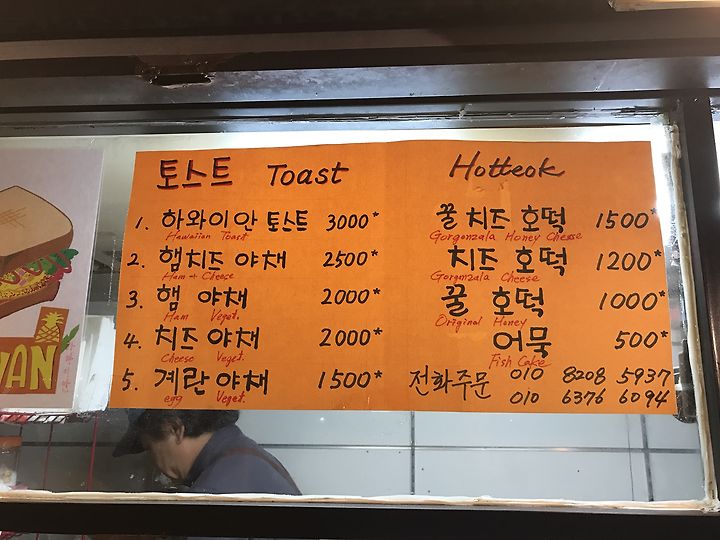 토스트 Toast
1. 하와이안 토스트 3000*
Hawaiian Toast
2. 햄치즈 야채 2500*
Ham + Cheese
3. 햄 야채 2000*
Ham Veget.
4. 치즈 야채 2000*
Cheese Veget.
5. 계란 야채 1500*
egg Veget.
Hotteok
꿀 치즈 호떡 1500*
Gorgonzala Honey Cheese
치즈 호떡 1200*
Gorgonzala Cheese
꿀 호떡 1000*
Original Honey
어묵 500*
Fish Cake
전화주문 010 8208 5937
010 6376 6094